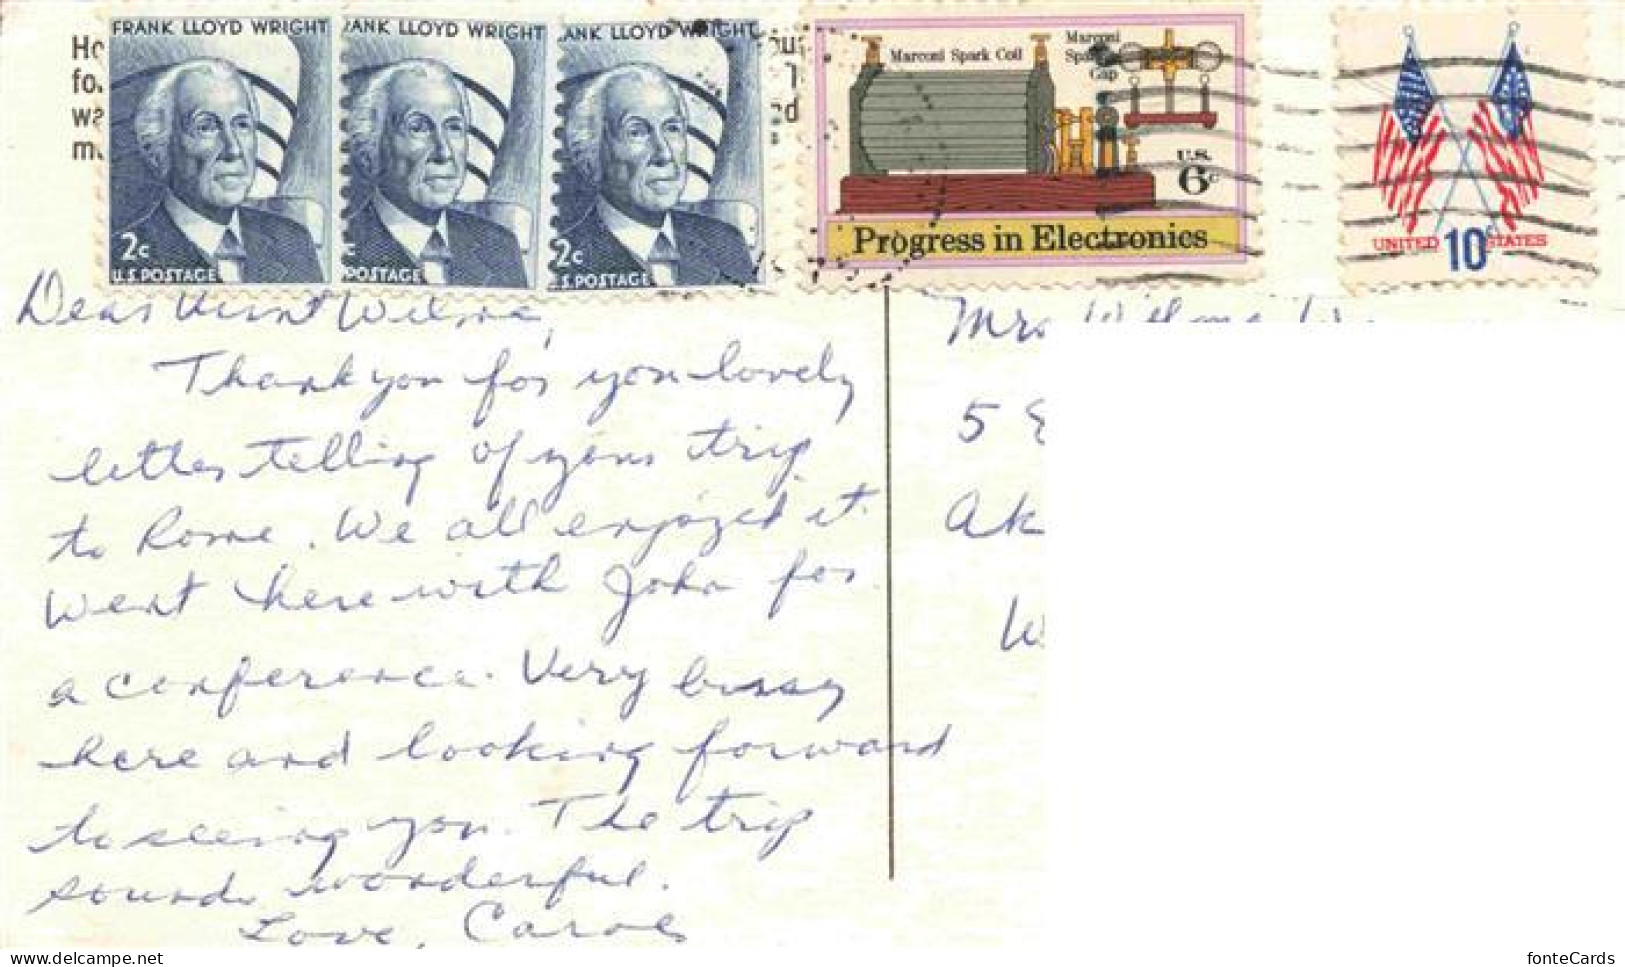 FRANK LLOYD WRIGHT
2c
U.S. POSTAGE
RANK LLOYD WRIGHT
c
POSTAGE
ANK LLOYD WRIGHT
2c
.S. POSTAGE
Marconi Spark Coil
Marconi
Spark
Gap
U.S.
6c
Progress in Electronics
UNITED 10c STATES
Dear Aunt Wilma,
Thank you for you lovely
letter telling of your trip
to Rome. We all enjoyed it.
Went here with John for
a conference. Very bussy
here and looking forward
to seeing you. The trip
sounds wonderful.
Love, Carol
Mrs Wilma
5 E
Ak
W
www.delcampe.net
fonteCards